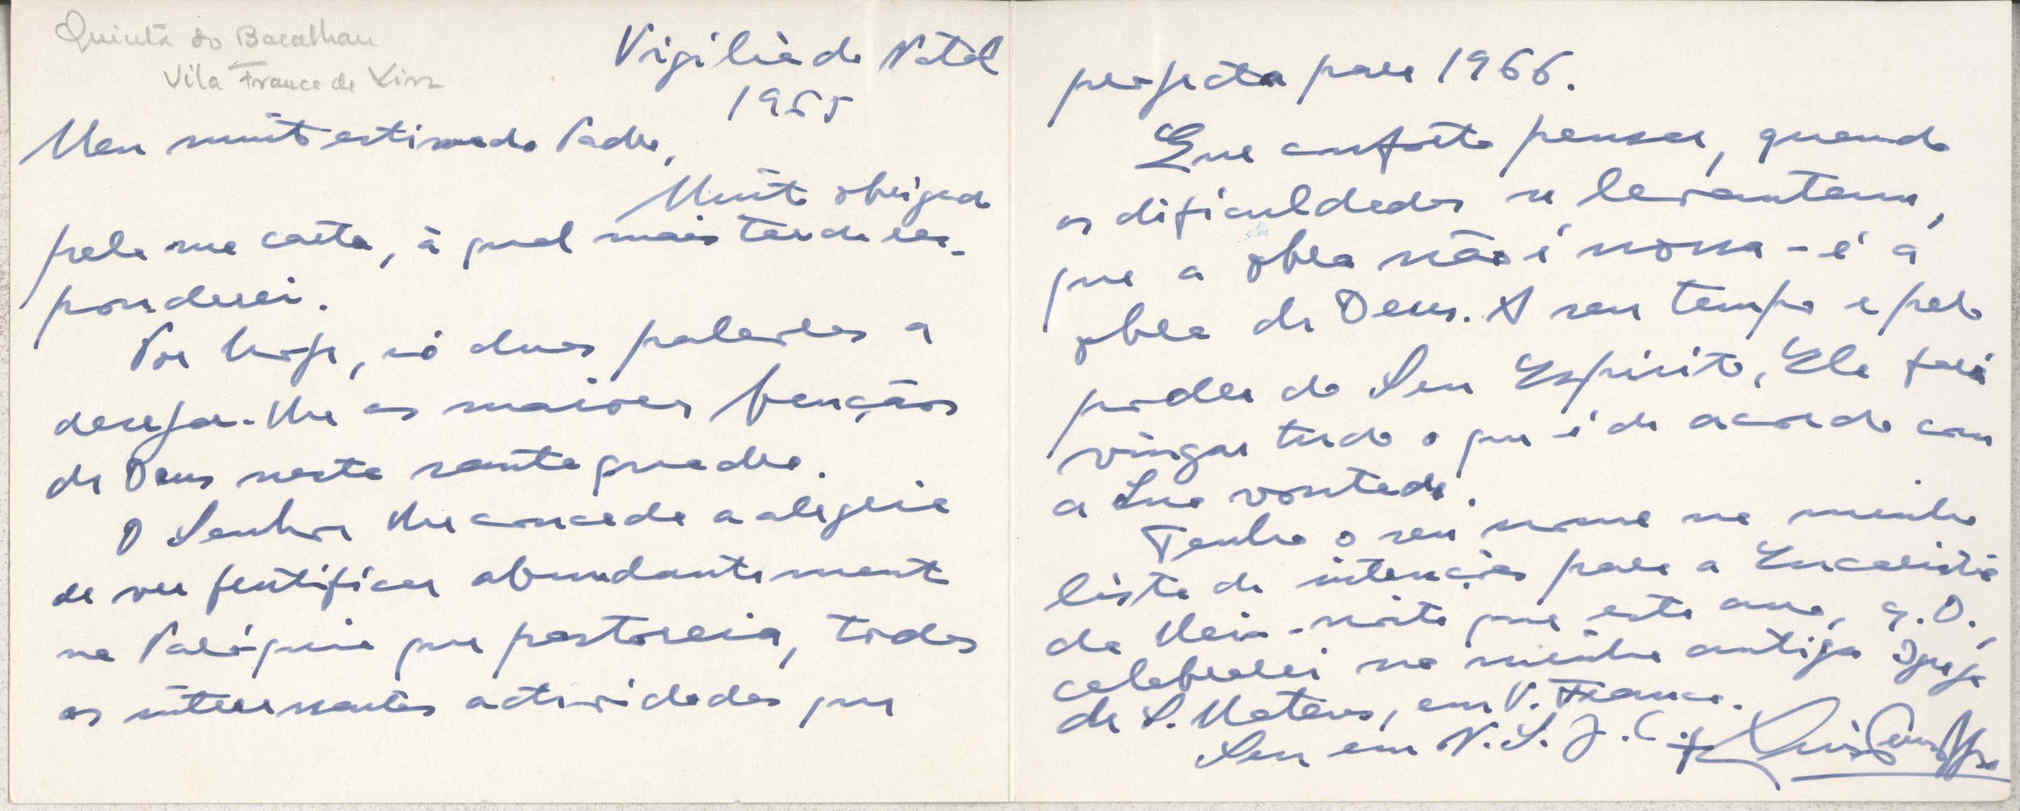 Quinta do Bacalhau
Vila Franca de Xira
Vigília do Natal
1965
Meu muito estimado Padre,
Muito obrigado
pela sua carta, à qual mais tarde res-
ponderei.
Por hoje, só duas palavras a
desejar-lhe as maiores bençãos
de Deus nesta santa quadra.
O Senhor lhe conceda a alegria
de ver frutificar abundantemente
na Paróquia que pastoreia, todas
as interessantes actividades que
projecta para 1966.
Que conforto pensar, quando
as dificuldades se levantam,
que a obra não é nossa - é a
obra de Deus. A seu tempo e pelo
poder do Seu Espírito, Ele fará
vingar tudo o que é de acordo com
a Sua vontade.
Tenho o seu nome na minha
lista de intenções para a Eucaristia
da Meia-noite que este ano, q. D.,
celebrarei na minha antiga Igreja
de S. Mateus, em V. Franca.
Seu em N. S. J. C.
+ Luís